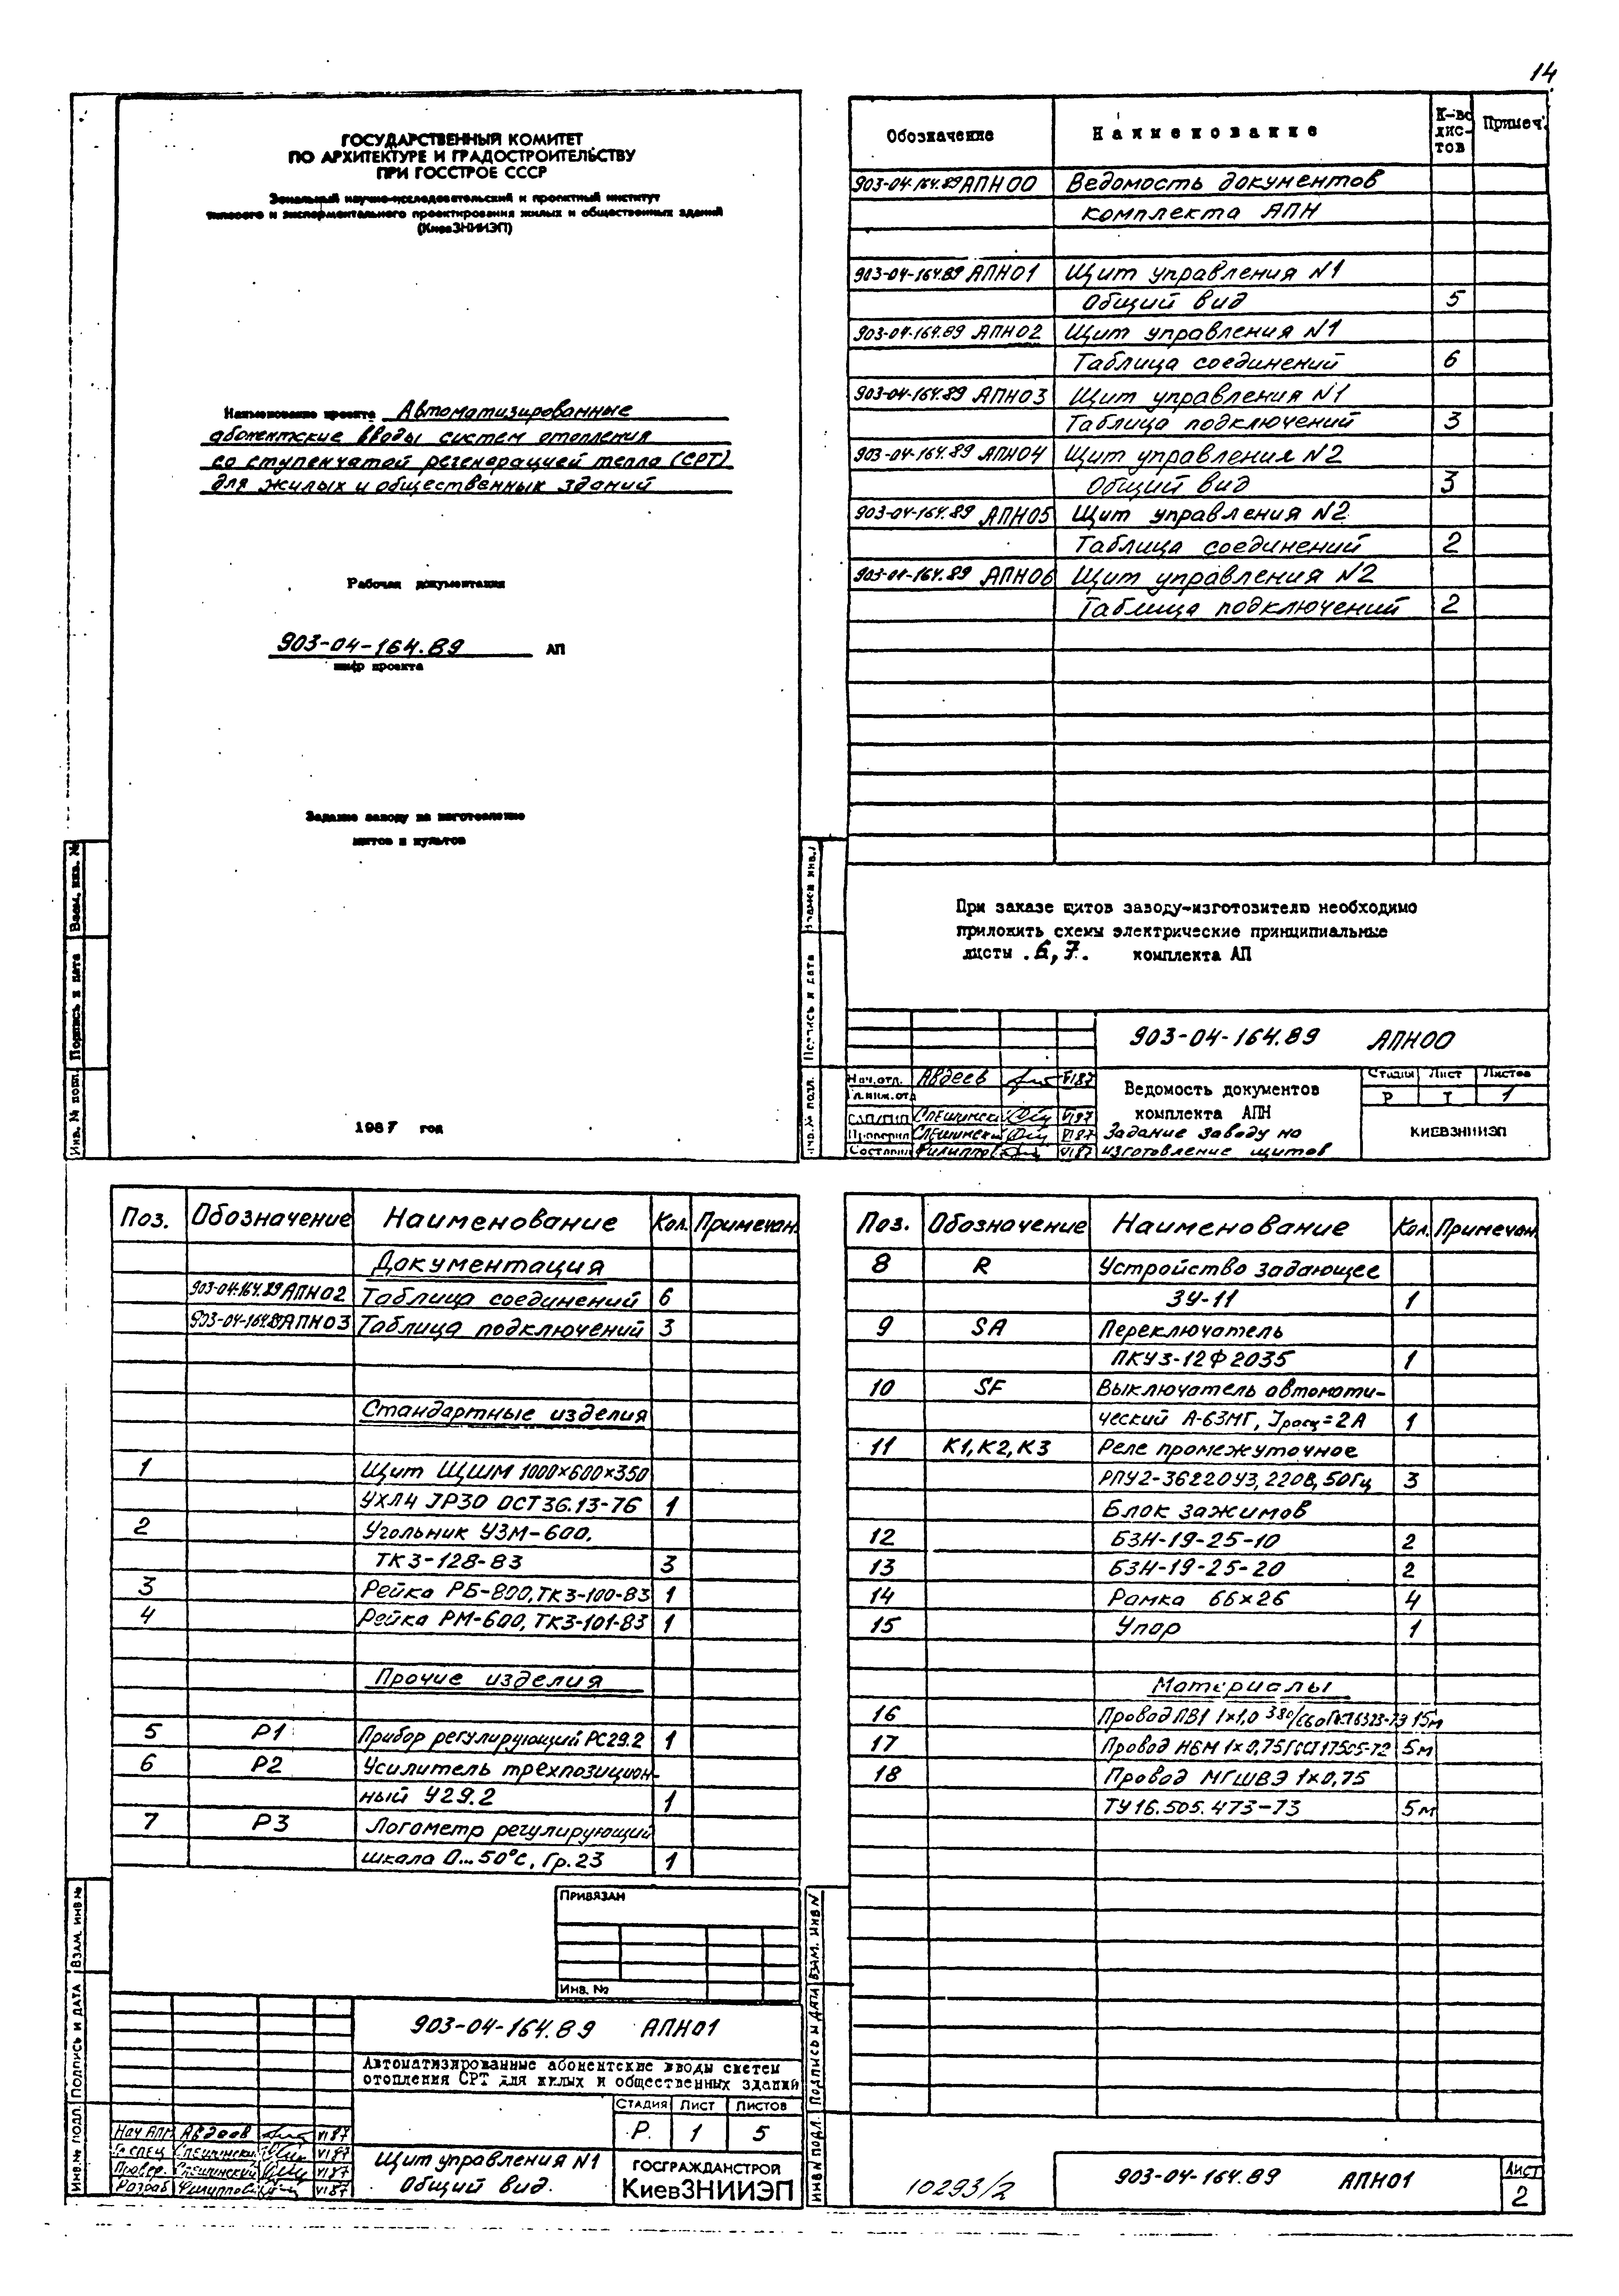 14
ГОСУДАРСТВЕННЫЙ КОМИТЕТ
ПО АРХИТЕКТУРЕ И ГРАДОСТРОИТЕЛЬСТВУ
ПРИ ГОССТРОЕ СССР
Зональный научно-исследовательский и проектный институт
типового и экспериментального проектирования жилых и общественных зданий
(КиевЗНИИЭП)
Наименование проекта Автоматизированные
абонентские вводы систем отопления
со ступенчатой регенерацией тепла (СРТ)
для жилых и общественных зданий
Рабочая документация
903-04-164.89 АП
шифр проекта
Задание заводу на изготовление
щитов и пультов
1987 год
Инв. № подл. Подпись и дата Взам. инв. №
Обозначение Наименование К-во лис-тов Примеч.
903-04-164.89 АПН00 Ведомость документов
комплекта АПН
903-04-164.89 АПН01 Щит управления N1
Общий вид 5
903-04-164.89 АПН02 Щит управления N1
Таблица соединений 6
903-04-164.89 АПН03 Щит управления N1
Таблица подключений 3
903-04-164.89 АПН04 Щит управления N2
Общий вид 3
903-04-164.89 АПН05 Щит управления N2
Таблица соединений 2
903-04-164.89 АПН06 Щит управления N2
Таблица подключений 2
При заказе щитов заводу-изготовителю необходимо
приложить схемы электрические принципиальные
листы 6,7. комплекта АП
903-04-164.89 АПН00
Нач.отд. Авдеев VI87
Гл.инж.отд
Проверил Спешинский VI87
Составил Филиппов VI87
Ведомость документов
комплекта АПН
Задание заводу на
изготовление щитов
Стадия Лист Листов
Р 1 1
КИЕВЗНИИЭП
Поз. Обозначение Наименование Кол. Примечан.
Документация
903-04-164.89 АПН02 Таблица соединений 6
903-04-164.89 АПН03 Таблица подключений 3
Стандартные изделия
1 Щит ЩШМ 1000×600×350
УХЛ4 JP30 ОСТ36.13-76 1
2 Угольник УЗМ-600,
ТК3-128-83 3
3 Рейка РБ-800, ТК3-100-83 1
4 Рейка РМ-600, ТК3-101-83 1
Прочие изделия
5 Р1 Прибор регулирующий РС29.2 1
6 Р2 Усилитель трехпозицион-
ный У29.2 1
7 Р3 Логометр регулирующий
шкала 0...50°С, Гр.23 1
Привязан
Инв. №
903-04-164.89 АПН01
Автоматизированные абонентские вводы систем
отопления СРТ для жилых и общественных зданий
Стадия Лист Листов
Р. 1 5
Нач АПМ Авдеев VI87
Гл спец Спешинский VI87
Провер. Спешинский VI87
Разраб Филиппов VI87
Щит управления N1
Общий вид.
ГОСГРАЖДАНСТРОЙ
КиевЗНИИЭП
Инв.№ подл. Подпись и дата Взам. инв №
Поз. Обозначение Наименование Кол. Примечан.
8 R Устройство задающее
ЗУ-11 1
9 SA Переключатель
ПКУ3-12Ф2035 1
10 SF Выключатель автомати-
ческий А-63МГ, Jрасц=2А 1
11 К1, К2, К3 Реле промежуточное
РПУ2-36220У3, 220В, 50Гц 3
Блок зажимов
12 БЗН-19-25-10 2
13 БЗН-19-25-20 2
14 Рамка 66×26 4
15 Упор 1
Материалы
16 Провод ПВ1 1×1,0 380/660 ГОСТ6323-79 15м
17 Провод НВМ 1×0,75 ГОСТ17505-72 5м
18 Провод МГШВЭ 1×0,75
ТУ16.505.473-73 5м
Инв N подл. Подпись и дата Взам. инв N
10293/2
903-04-164.89 АПН01
Лист
2